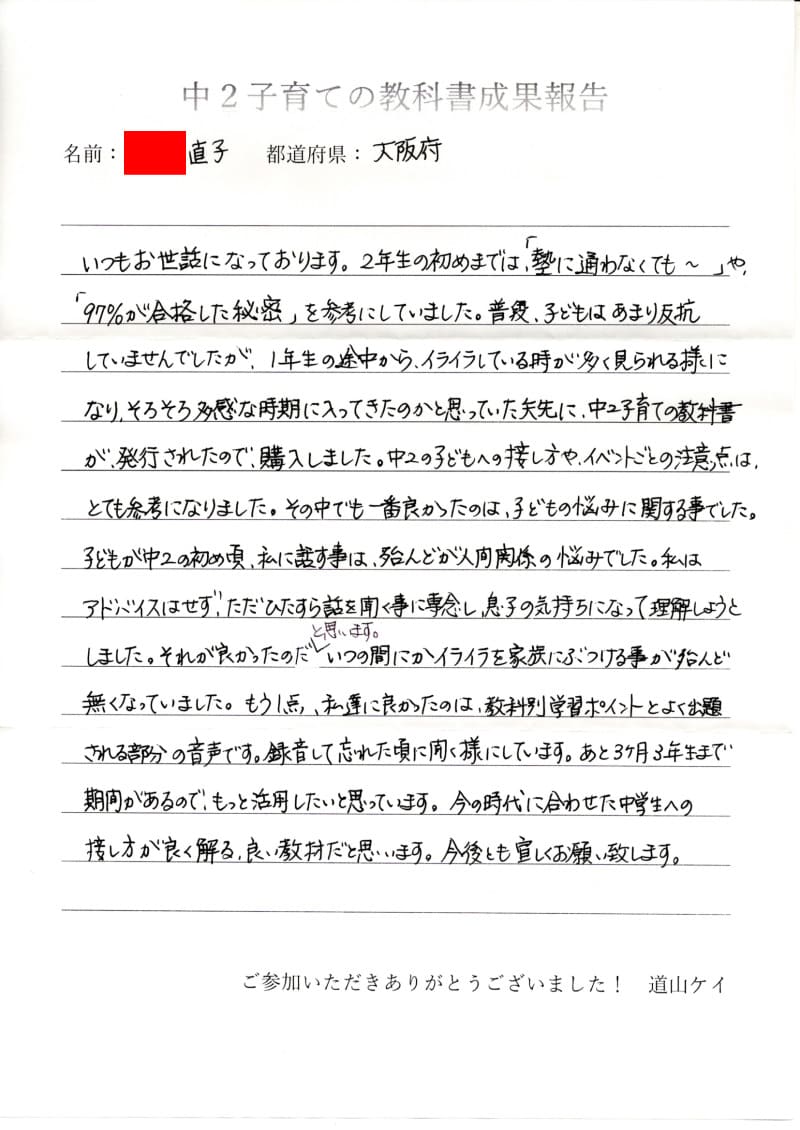 中2子育ての教科書成果報告
名前： 直子 都道府県： 大阪府
いつもお世話になっております。2年生の初めまでは、「塾に通わなくても～」や、
「97%が合格した秘密」を参考にしていました。普段、子どもはあまり反抗
していませんでしたが、1年生の途中から、イライラしている時が多く見られる様に
なり、そろそろ多感な時期に入ってきたのかと思っていた矢先に、中2子育ての教科書
が、発行されたので、購入しました。中2の子どもへの接し方や、イベントごとの注意点は、
とても参考になりました。その中でも一番良かったのは、子どもの悩みに関する事でした。
子どもが中2の初め頃、私に話す事は、殆んどが人間関係の悩みでした。私は
アドバイスはせず、ただひたすら話を聞く事に専念し、息子の気持ちになって理解しようと
しました。それが良かったのだと思います。いつの間にかイライラを家族にぶつける事が殆んど
無くなっていました。もう1点、私達に良かったのは、教科別学習ポイントとよく出題
される部分の音声です。録音して忘れた頃に聞く様にしています。あと3ヶ月3年生まで
期間があるので、もっと活用したいと思っています。今の時代に合わせた中学生への
接し方が良く解る、良い教材だと思います。今後とも宜しくお願い致します。
ご参加いただきありがとうございました！ 道山ケイ